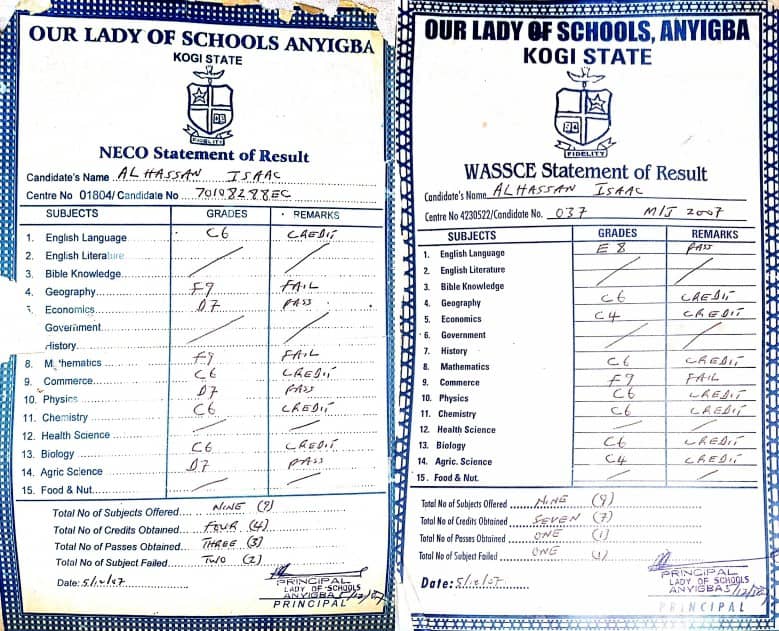 OUR LADY OF SCHOOLS ANYIGBA
KOGI STATE
FIDELITY
NECO Statement of Result
Candidate's Name ALHASSAN ISAAC
Centre No 01804/ Candidate No 70108288EC
SUBJECTS GRADES REMARKS
1. English Language C6 CREDIT
2. English Literature
3. Bible Knowledge
4. Geography F9 FAIL
Economics D7 PASS
Government
History
8. M thematics F9 FAIL
9. Commerce C6 CREDIT
10. Physics D7 PASS
11. Chemistry C6 CREDIT
12. Health Science
13. Biology C6 CREDIT
14. Agric Science D7 PASS
15. Food & Nut
Total No of Subjects Offered NINE (9)
Total No of Credits Obtained FOUR (4)
Total No of Passes Obtained THREE (3)
Total No of Subject Failed TWO (2)
Date: 5/12/07
PRINCIPAL
LADY OF SCHOOLS
ANYIGBA 5/12/07
PRINCIPAL
OUR LADY OF SCHOOLS, ANYIGBA
KOGI STATE
FIDELITY
WASSCE Statement of Result
Candidate's Name ALHASSAN ISAAC
Centre No 4230522/Candidate No. 037 M/J 2007
SUBJECTS GRADES REMARKS
1. English Language E8 PASS
2. English Literature
3. Bible Knowledge
4. Geography C6 CREDIT
5. Economics C4 CREDIT
6. Government
7. History
8. Mathematics C6 CREDIT
9. Commerce F9 FAIL
10. Physics C6 CREDIT
11. Chemistry C6 CREDIT
12. Health Science
13. Biology C6 CREDIT
14. Agric. Science C4 CREDIT
15. Food & Nut.
Total No of Subjects Offered NINE (9)
Total No of Credits Obtained SEVEN (7)
Total No of Passes Obtained ONE (1)
Total No of Subject Failed ONE (1)
Date: 5/12/07
PRINCIPAL
LADY OF SCHOOLS
ANYIGBA 5/12/07
PRINCIPAL